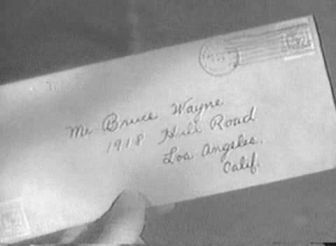 Mr. Bruce Wayne
1918 Hill Road
Los Angeles.
Calif.